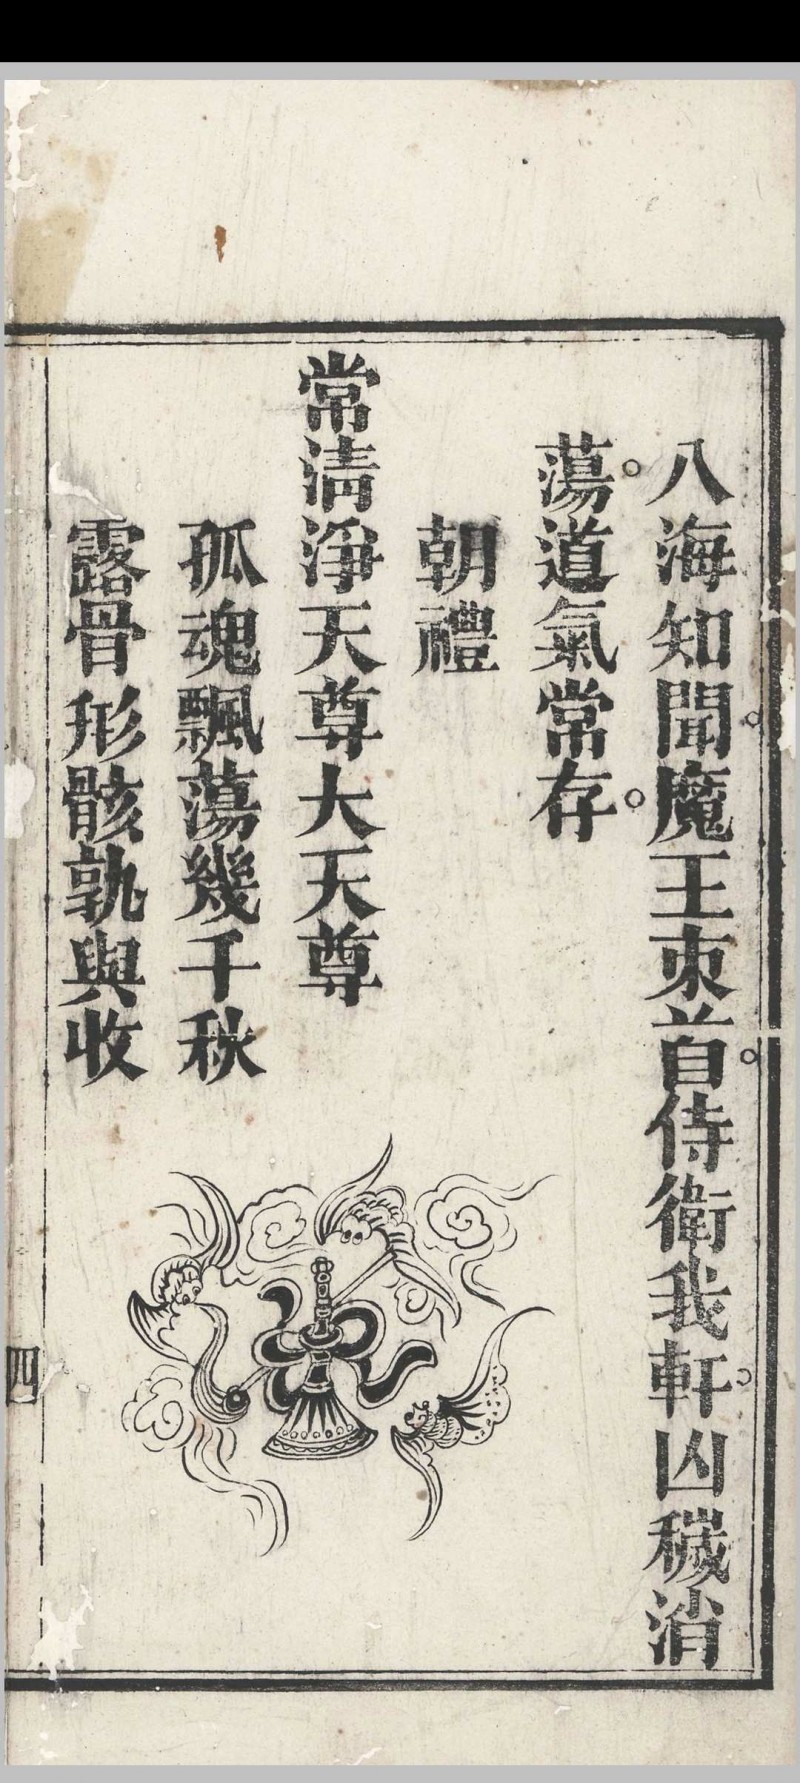 八海知聞魔王朿首侍衛我軒凶穢消
蕩道氣常存
朝禮
常淸淨天尊大天尊
孤魂飄蕩幾千秋
露骨形骸孰與收
四